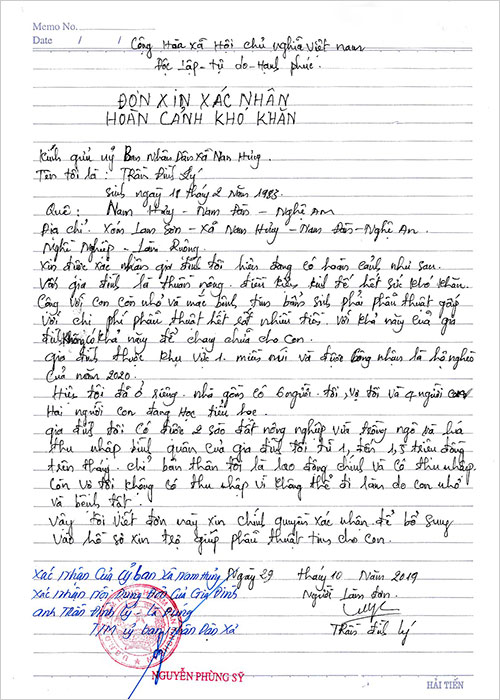 Memo No.
Date / /
Cộng Hòa xã Hội chủ nghĩa Việt nam
Độc lập - tự do - Hạnh phúc.
ĐƠN XIN XÁC NHÂN
HOÀN CẢNH KHO KHĂN
Kính gửi uỷ Ban Nhân Dân Xã Nam Hưng.
Tên tôi là: Trần Đình Lý
Sinh ngày 18 tháng 2 năm 1983.
Quê: Nam Hưng - Nam Đàn - Nghệ An
Địa chỉ. Xóm Lam Sơn - Xã Nam Hưng - Nam Đàn - Nghệ An.
Nghề Nghiệp - Làm Ruộng.
Xin được xác nhận gia đình tôi hiện đang có hoàn cảnh như sau.
Với gia đình là thuần nông. điều kiện kinh tế hết sức khó khăn.
Cộng với con còn nhỏ và mắc bệnh, tim bẩm sinh phải phẫu thuật gấp
Với chi phí phẫu thuật hết rất nhiều tiền. Với khả này của gia
đình không có khả này để chạy chữa cho con.
gia đình thuộc khu vực 1. miền núi và được công nhân là hộ nghèo
của năm 2020.
Hiện tôi đã ở riêng. nhà gồm có 6 người. tôi, vợ tôi và 4 người con
Hai người con đang Học tiểu học.
gia đình tôi có được 2 sào đất nông nghiệp vừa trồng ngô và lúa
thu nhập bình quân của gia đình tôi từ 1, đến 1,5 triệu đồng
trên tháng. chỉ bản thân tôi là lao động chính và có thu nhập.
Còn vợ tôi không có thu nhập vì không thể đi làm do con nhỏ
và bệnh tật.
Vậy tôi viết đơn này xin chính quyền xác nhận để bổ sung
vào hồ sơ xin trợ giúp phẫu thuật tim cho con.
Ngày 29 tháng 10 Năm 2019
Xác nhận Của Uỷ ban xã Nam Hưng
Người Làm đơn
Xác nhận Nội Dung Đơn Của Gia Đình
anh Trần Đình Lý - Là Đúng
T/M uỷ ban Nhân Dân Xã
Trần đình Lý
NGUYỄN PHÙNG SỸ
HẢI TIẾN